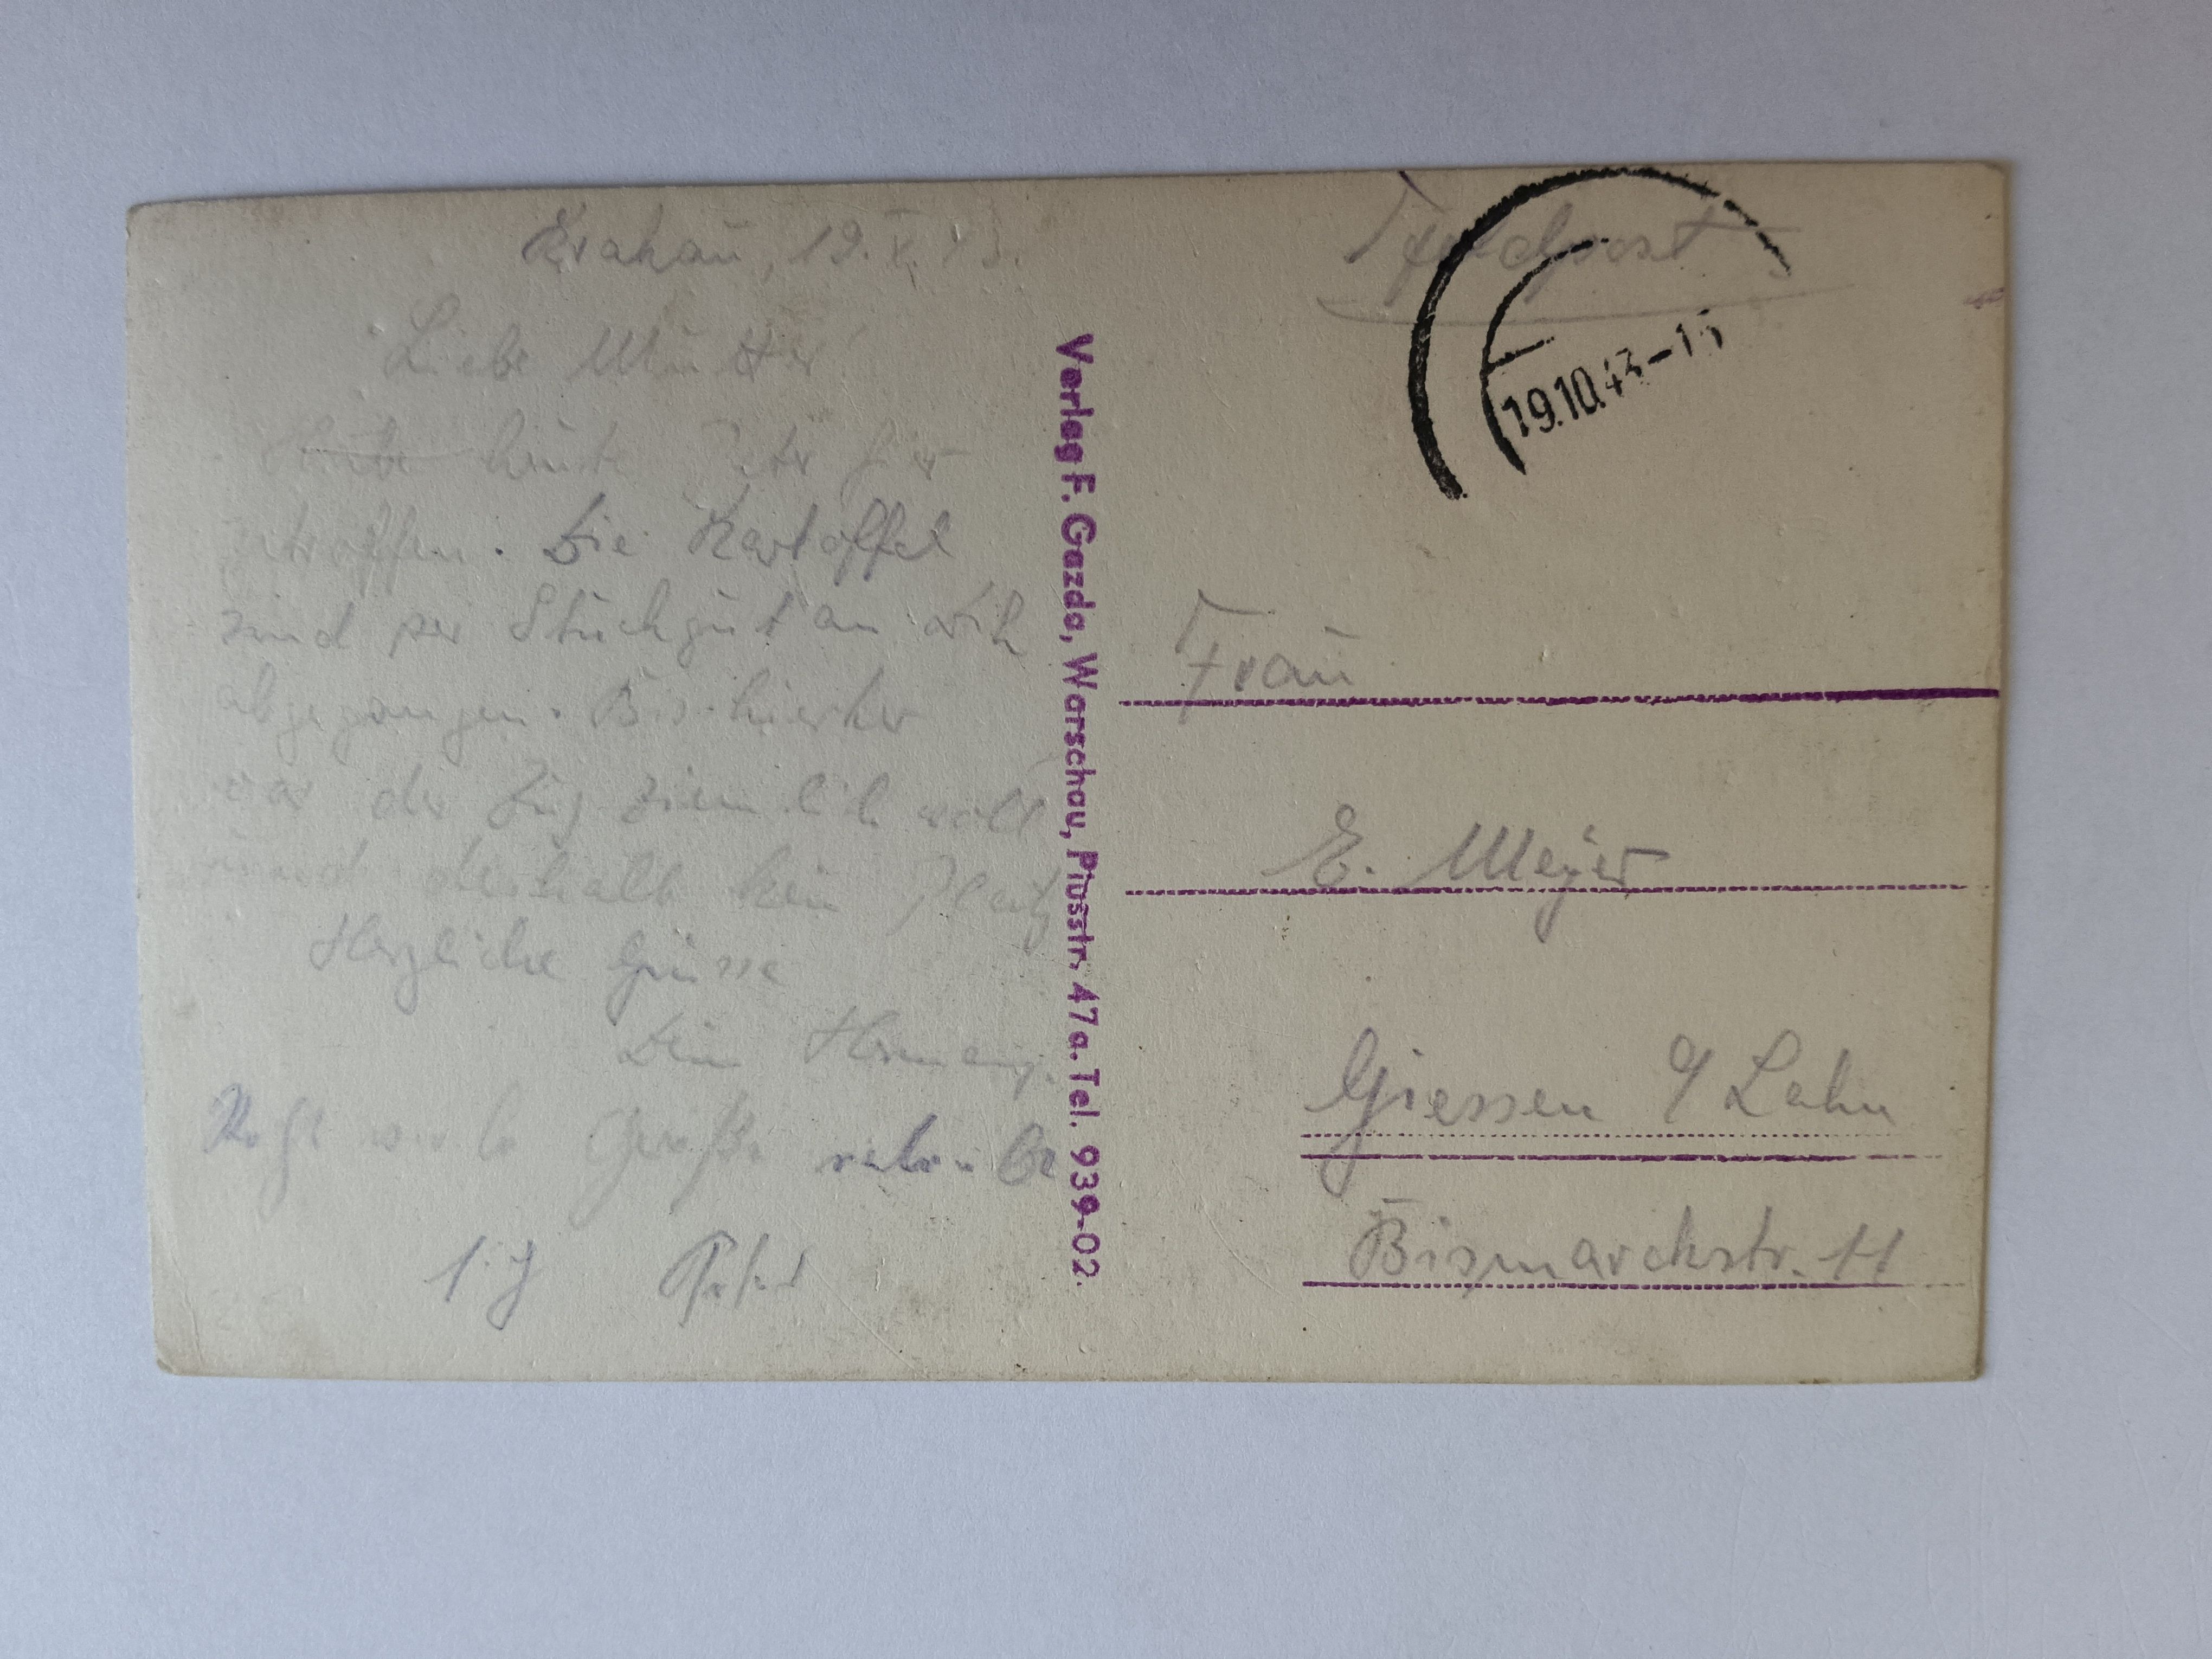 Krakau, 19.X.43.
Liebe Mutter
Habe heute Peter hier
getroffen. Die Kartoffel
sind per Stückgut an Dich
abgegangen. Bis hierher
war der Zug ziemlich voll
und deshalb kein Platz
Herzliche Grüsse
Dein
Grüße
Verlag F. Gazda, Warschau, Piusstr. 47a. Tel. 939-02.
Feldpost
19.10.43-15
Frau
E. Meyer
Giessen a/Lahn
Bismarckstr. 11